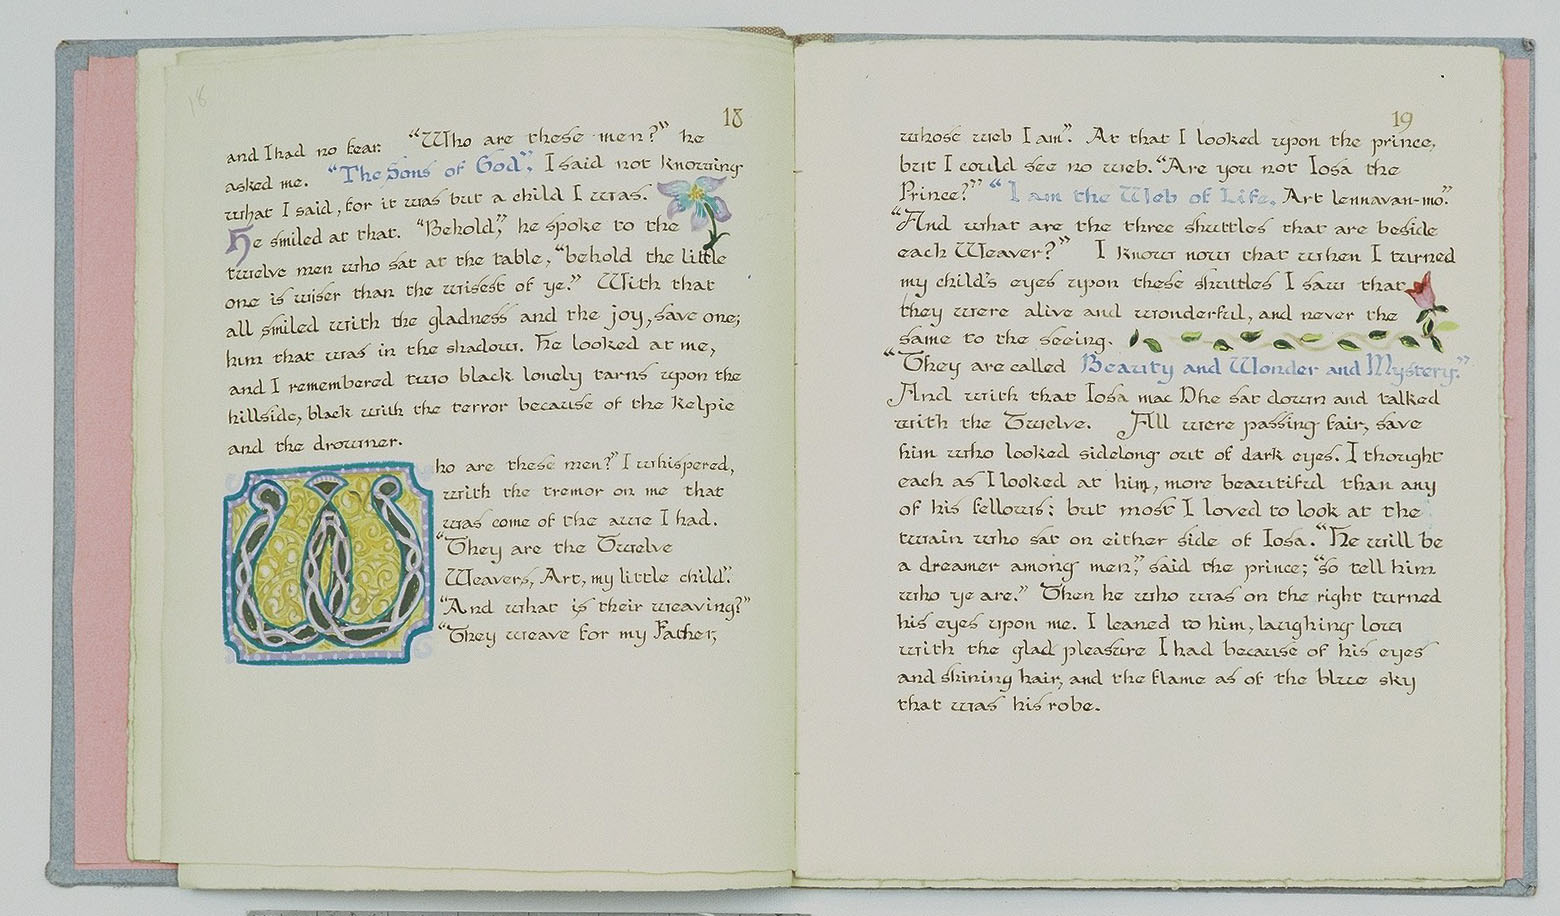 18
18
and I had no fear. "Who are these men?" he
asked me. "The Sons of God", I said not knowing
what I said, for it was but a child I was.
He smiled at that. "Behold," he spoke to the
twelve men who sat at the table, "behold the little
one is wiser than the wisest of ye." With that
all smiled with the gladness and the joy, save one;
him that was in the shadow. He looked at me,
and I remembered two black lonely tarns upon the
hillside, black with the terror because of the kelpie
and the drowner.
Who are these men?" I whispered,
with the tremor on me that
was come of the awe I had.
"They are the Twelve
Weavers, Art, my little child".
"And what is their weaving?"
"They weave for my Father,
19
whose web I am". At that I looked upon the prince,
but I could see no web. "Are you not Iosa the
Prince?" "I am the Web of Life, Art lennavan-mo".
"And what are the three shuttles that are beside
each Weaver?" I know now that when I turned
my child's eyes upon these shuttles I saw that
they were alive and wonderful, and never the
same to the seeing.
"They are called Beauty and Wonder and Mystery."
And with that Iosa mac Dhe sat down and talked
with the Twelve. All were passing fair, save
him who looked sidelong out of dark eyes. I thought
each as I looked at him, more beautiful than any
of his fellows; but most I loved to look at the
twain who sat on either side of Iosa. "He will be
a dreamer among men", said the prince; "so tell him
who ye are." Then he who was on the right turned
his eyes upon me. I leaned to him, laughing low
with the glad pleasure I had because of his eyes
and shining hair, and the flame as of the blue sky
that was his robe.